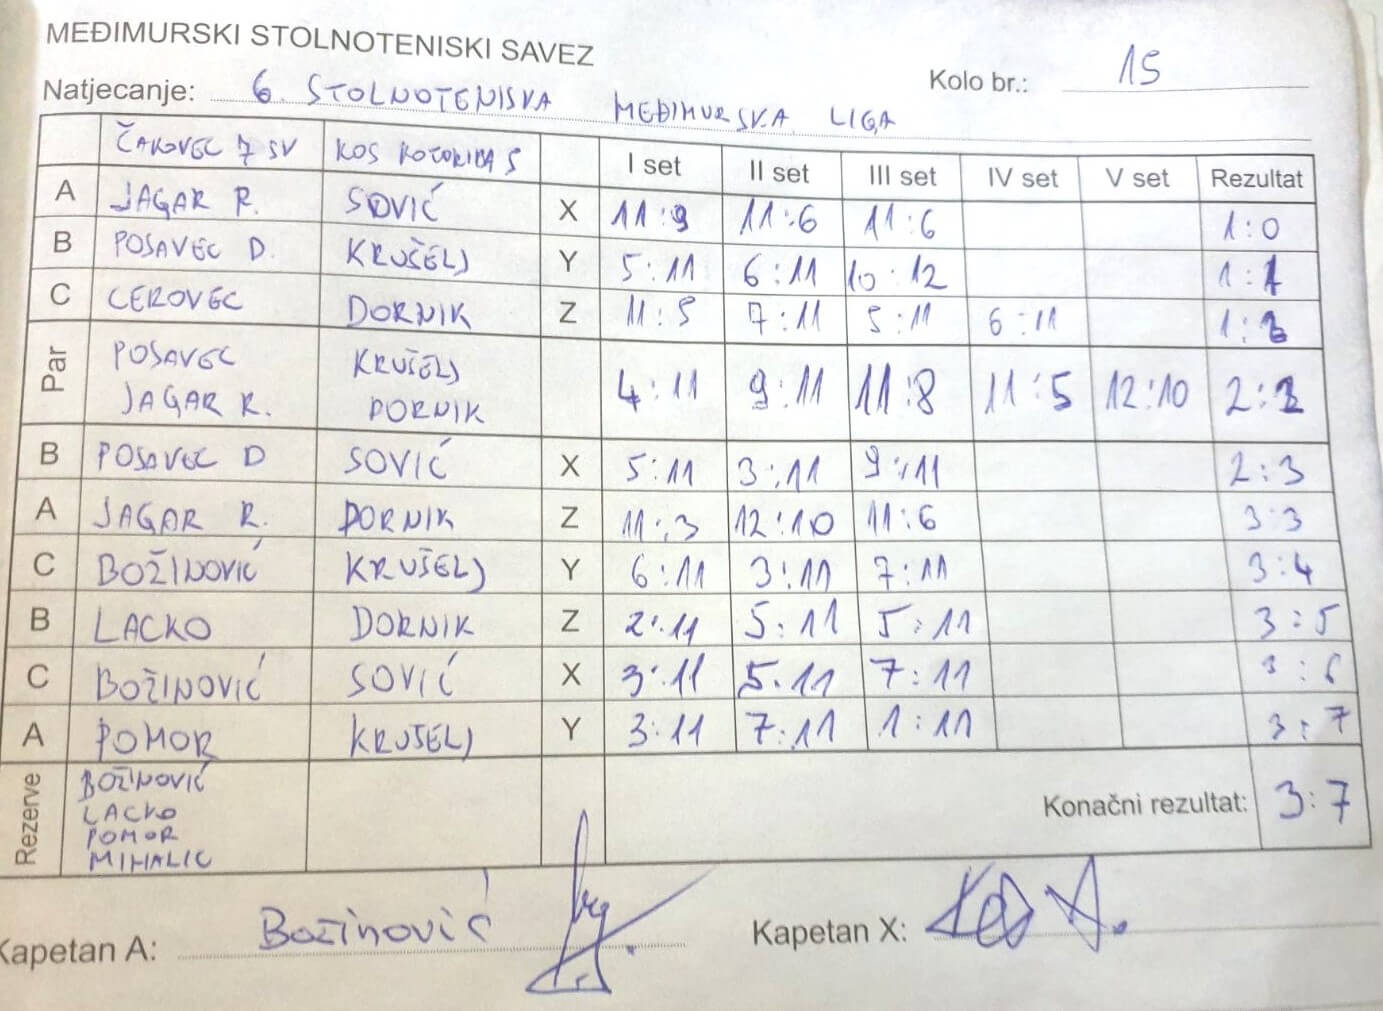 MEĐIMURSKI STOLNOTENISKI SAVEZ
Natjecanje: 6. STOLNOTENISKA MEĐIMURSKA LIGA Kolo br.: 15
ČAKOVEC 7 SV KOS KOTORIBA 5 I set II set III set IV set V set Rezultat
A JAGAR R. SOVIĆ X 11:9 11:6 11:6 1:0
B POSAVEC D. KRUŠELJ Y 5:11 6:11 10:12 1:1
C CEROVEC DORNIK Z 11:5 7:11 5:11 6:11 1:2
Par POSAVEC KRUŠELJ
JAGAR R. DORNIK 4:11 9:11 11:8 11:5 12:10 2:2
B POSAVEC D SOVIĆ X 5:11 3:11 9:11 2:3
A JAGAR R. DORNIK Z 11:3 12:10 11:6 3:3
C BOŽINOVIĆ KRUŠELJ Y 6:11 3:11 7:11 3:4
B LACKO DORNIK Z 2:11 5:11 5:11 3:5
C BOŽINOVIĆ SOVIĆ X 3:11 5:11 7:11 3:6
A POMOR KRUŠELJ Y 3:11 7:11 1:11 3:7
Rezerve BOŽINOVIĆ
LACKO
POMOR
MIHALIC
Konačni rezultat: 3:7
Kapetan A: Božinović Kapetan X: